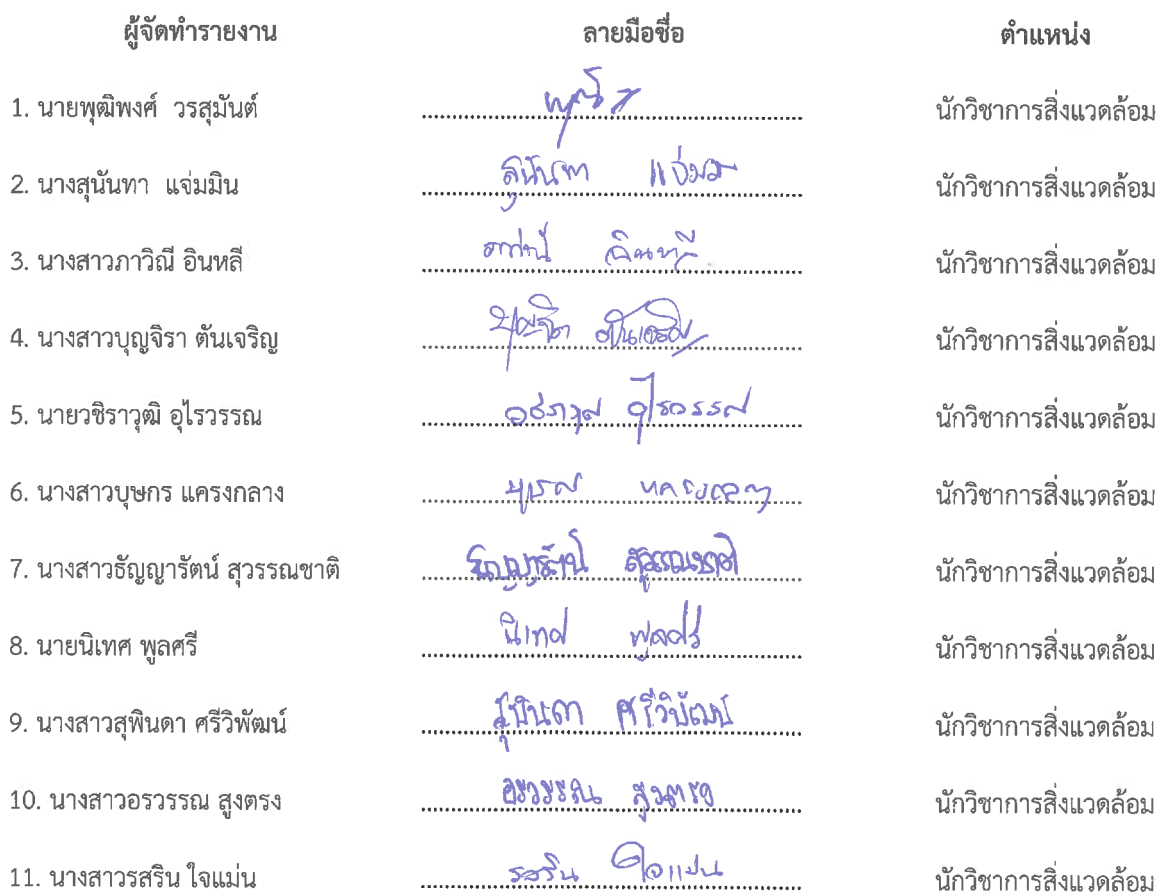 ผู้จัดทำรายงาน ลายมือชื่อ ตำแหน่ง
1. นายพุฒิพงศ์ วรสุมันต์ นักวิชาการสิ่งแวดล้อม
2. นางสุนันทา แจ่มมิน สุนันทา แจ่มมิน นักวิชาการสิ่งแวดล้อม
3. นางสาวภาวิณี อินหลี ภาวิณี อินหลี นักวิชาการสิ่งแวดล้อม
4. นางสาวบุญจิรา ตันเจริญ บุญจิรา ตันเจริญ นักวิชาการสิ่งแวดล้อม
5. นายวชิราวุฒิ อุไรวรรณ วชิราวุฒิ อุไรวรรณ นักวิชาการสิ่งแวดล้อม
6. นางสาวบุษกร แครงกลาง บุษกร แครงกลาง นักวิชาการสิ่งแวดล้อม
7. นางสาวธัญญารัตน์ สุวรรณชาติ ธัญญารัตน์ สุวรรณชาติ นักวิชาการสิ่งแวดล้อม
8. นายนิเทศ พูลศรี นิเทศ พูลศรี นักวิชาการสิ่งแวดล้อม
9. นางสาวสุพินดา ศรีวิพัฒน์ สุพินดา ศรีวิพัฒน์ นักวิชาการสิ่งแวดล้อม
10. นางสาวอรวรรณ สูงตรง อรวรรณ สูงตรง นักวิชาการสิ่งแวดล้อม
11. นางสาวรสริน ใจแม่น รสริน ใจแม่น นักวิชาการสิ่งแวดล้อม